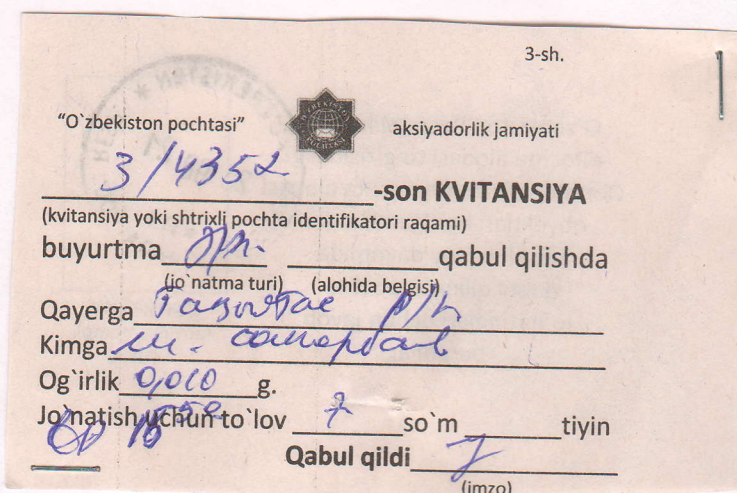 3-sh.
"O`zbekiston pochtasi" aksiyadorlik jamiyati
3/4352 -son KVITANSIYA
(kvitansiya yoki shtrixli pochta identifikatori raqami)
buyurtma qabul qilishda
(jo`natma turi) (alohida belgisi)
Qayerga
Kimga
Og`irlik 0,010 g.
Jo`natish uchun to`lov 7 so`m tiyin
Qabul qildi
(imzo)